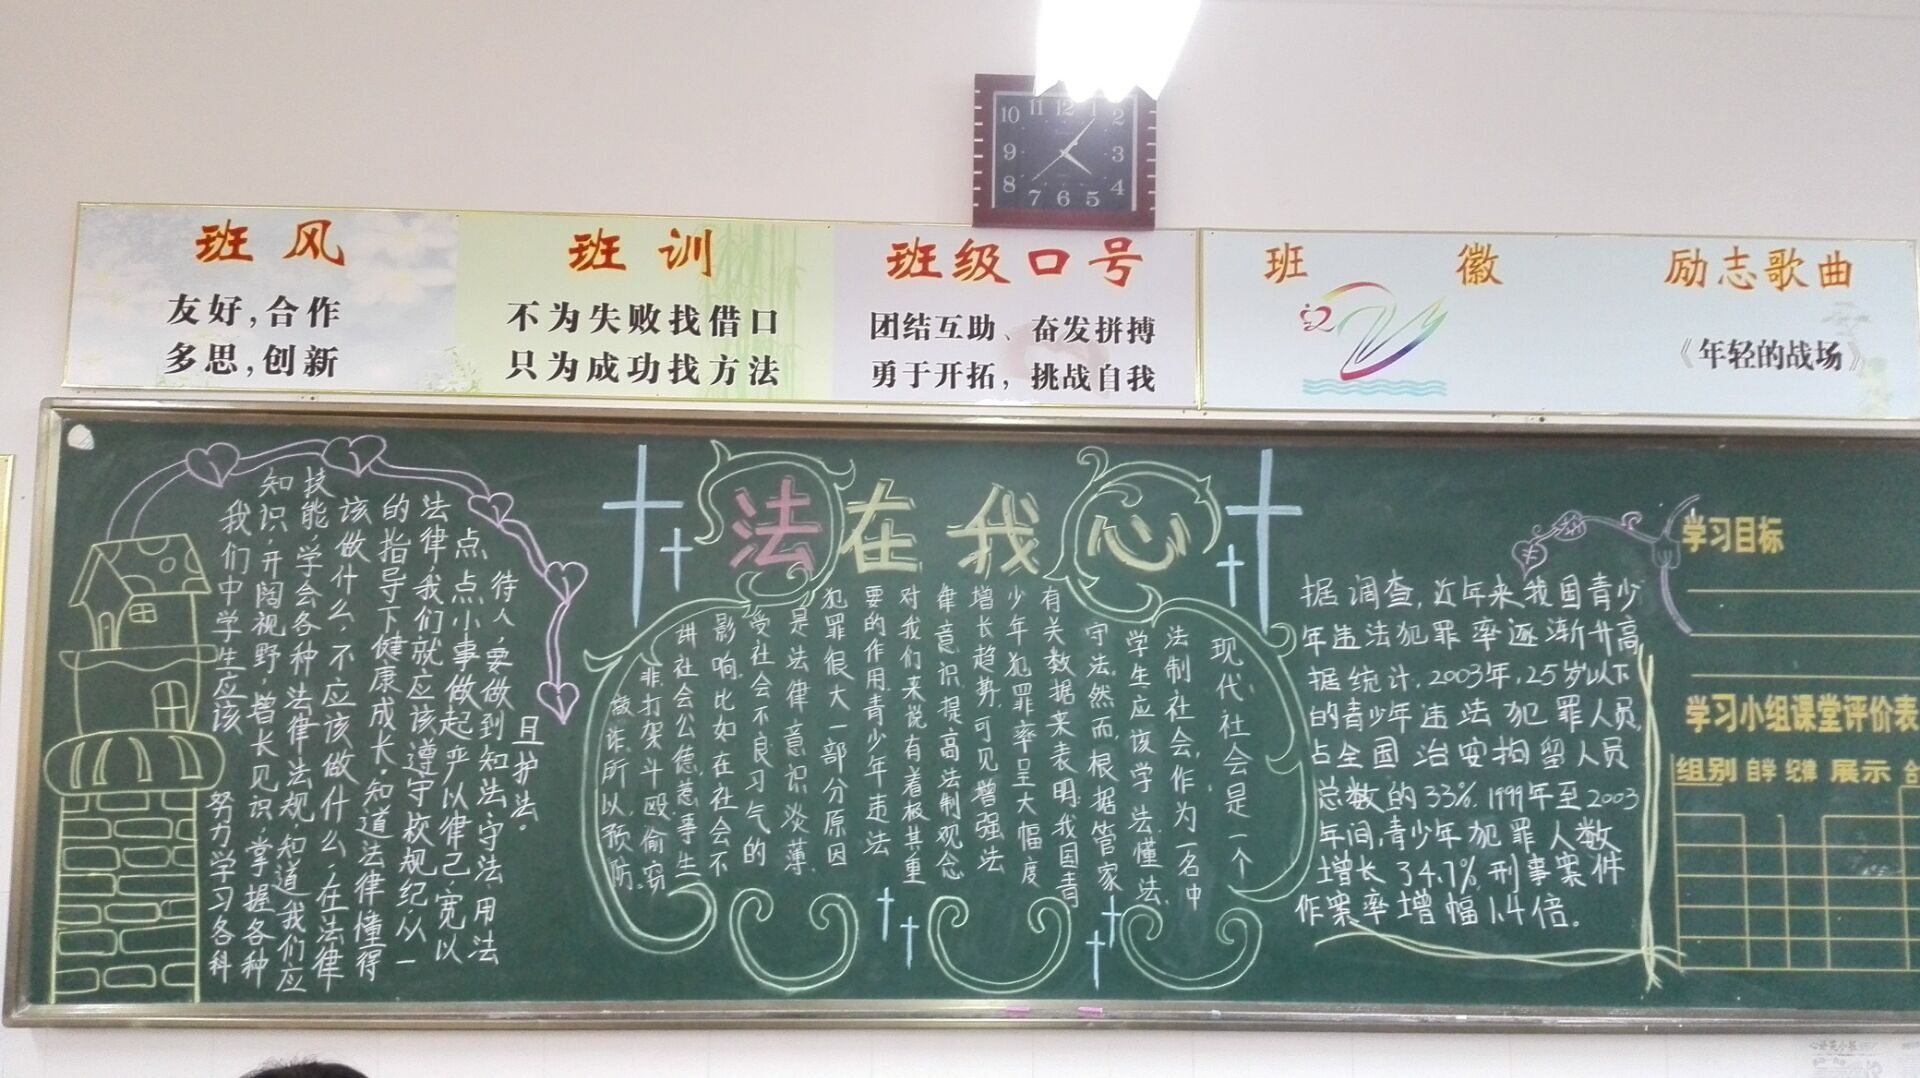 10 11 12 1 2
9 3
8 7 6 5 4
班风
友好,合作
多思,创新
班训
不为失败找借口
只为成功找方法
班级口号
团结互助、奋发拼搏
勇于开拓，挑战自我
班徽
励志歌曲
《年轻的战场》
法在我心
我们中学生应该 努力学习各科
知识,开阔视野,增长见识,掌握各种
技能,学会各种法律法规,知道我们应
该做什么,不应该做什么,在法律
的指导下健康成长,知道法律懂得
法律,我们就应该遵守校规纪,从一
点点小事做起严以律己,宽以
待人,要做到知法,守法,用法
且护法。
现代社会是一个
法制社会,作为一名中
学生应该学法,懂法,
守法。然而根据管家
有关数据来表明,我国青
少年犯罪率呈大幅度
增长趋势,可见增强法
律意识提高法制观念
对我们来说有着极其重
要的作用.青少年违法
犯罪很大一部分原因
是法律意识淡薄,
受社会不良习气的
影响.比如在社会不
讲社会公德,惹事生
非,打架斗殴偷窃
诈.所以,预防。
据调查,近年来我国青少
年违法犯罪率逐渐升高
据统计,2003年,25岁以下
的青少年违法犯罪人员,
占全国治安拘留人员
总数的33%.1999年至2003
年间,青少年犯罪人数
增长34.7%,刑事案件
作案率增幅1.4倍。
学习目标
学习小组课堂评价表
组别 自学 纪律 展示 合